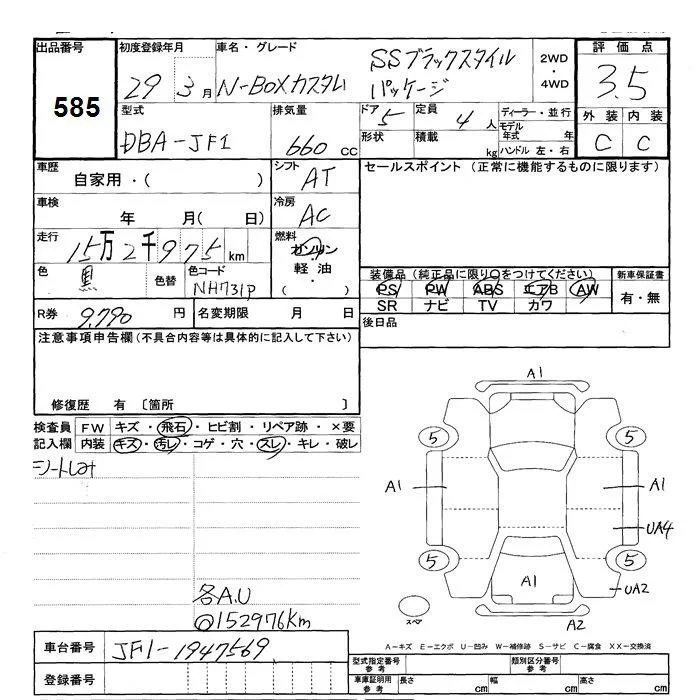 出品番号 初度登録年月 車名・グレード 2WD・4WD 評価点
585 29 3月 N-BOXカスタム SSブラックスタイルパッケージ 3.5
型式 排気量 ドア 定員 ディーラー・並行 外装 内装
DBA-JF1 660cc 5 4人 モデル年式 年 C C
形状 積載 kg ハンドル 左・右
車歴 シフト セールスポイント (正常に機能するものに限ります)
自家用・( ) AT
車検 冷房
年 月( 日) AC
走行 燃料
15万2千975km ガソリン
色 色替 色コード 軽油・( )
黒 NH731P
装備品 (純正品に限り○をつけてください) 新車保証書
PS PW ABS エアB AW 有・無
SR ナビ TV カワ
R券 9,790円 名変期限 月 日 後日品
注意事項申告欄 (不具合内容等は具体的に記入して下さい)
修復歴 有 〔箇所 〕
検査員 FW キズ・飛石・ヒビ割・リペア跡・×要
記入欄 内装 キズ・汚レ・コゲ・穴・スレ・キレ・破レ
シートしみ
A1
5 5
A1 A1
UA4
5 5
A1
UA2
スペア
A2
各A.U
@152976Km
A-キズ E-エクボ U-凹み W-補修跡 S-サビ C-腐食 XX-交換済
車台番号 JF1-1947569
登録番号
型式指定番号 参考 類別区分番号 参考
車庫証明用 参考 長さ cm 幅 cm 高さ cm